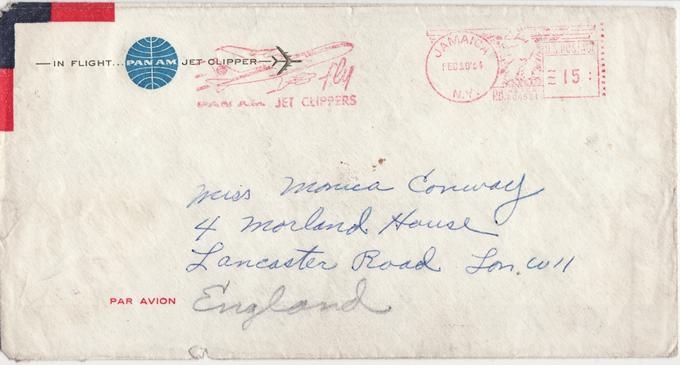 IN FLIGHT... PAN AM JET CLIPPER
fly
PAN AM JET CLIPPERS
JAMAICA
FEB
N.Y.
U.S. POSTAGE
15
P.B.
Miss Monica Conway
4 Morland House
Lancaster Road Lon. W11
PAR AVION
England